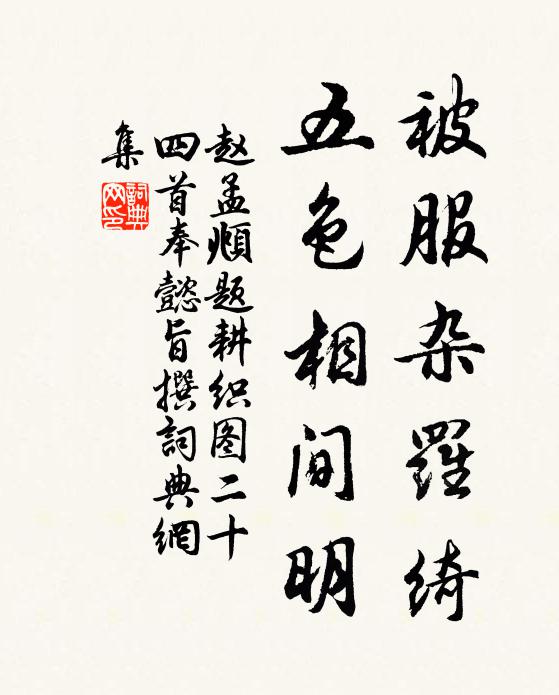 被服杂羅绮
五色相间明
赵孟頫题耕织图二十
四首奉懿旨撰詞典網
集
詞典
网印